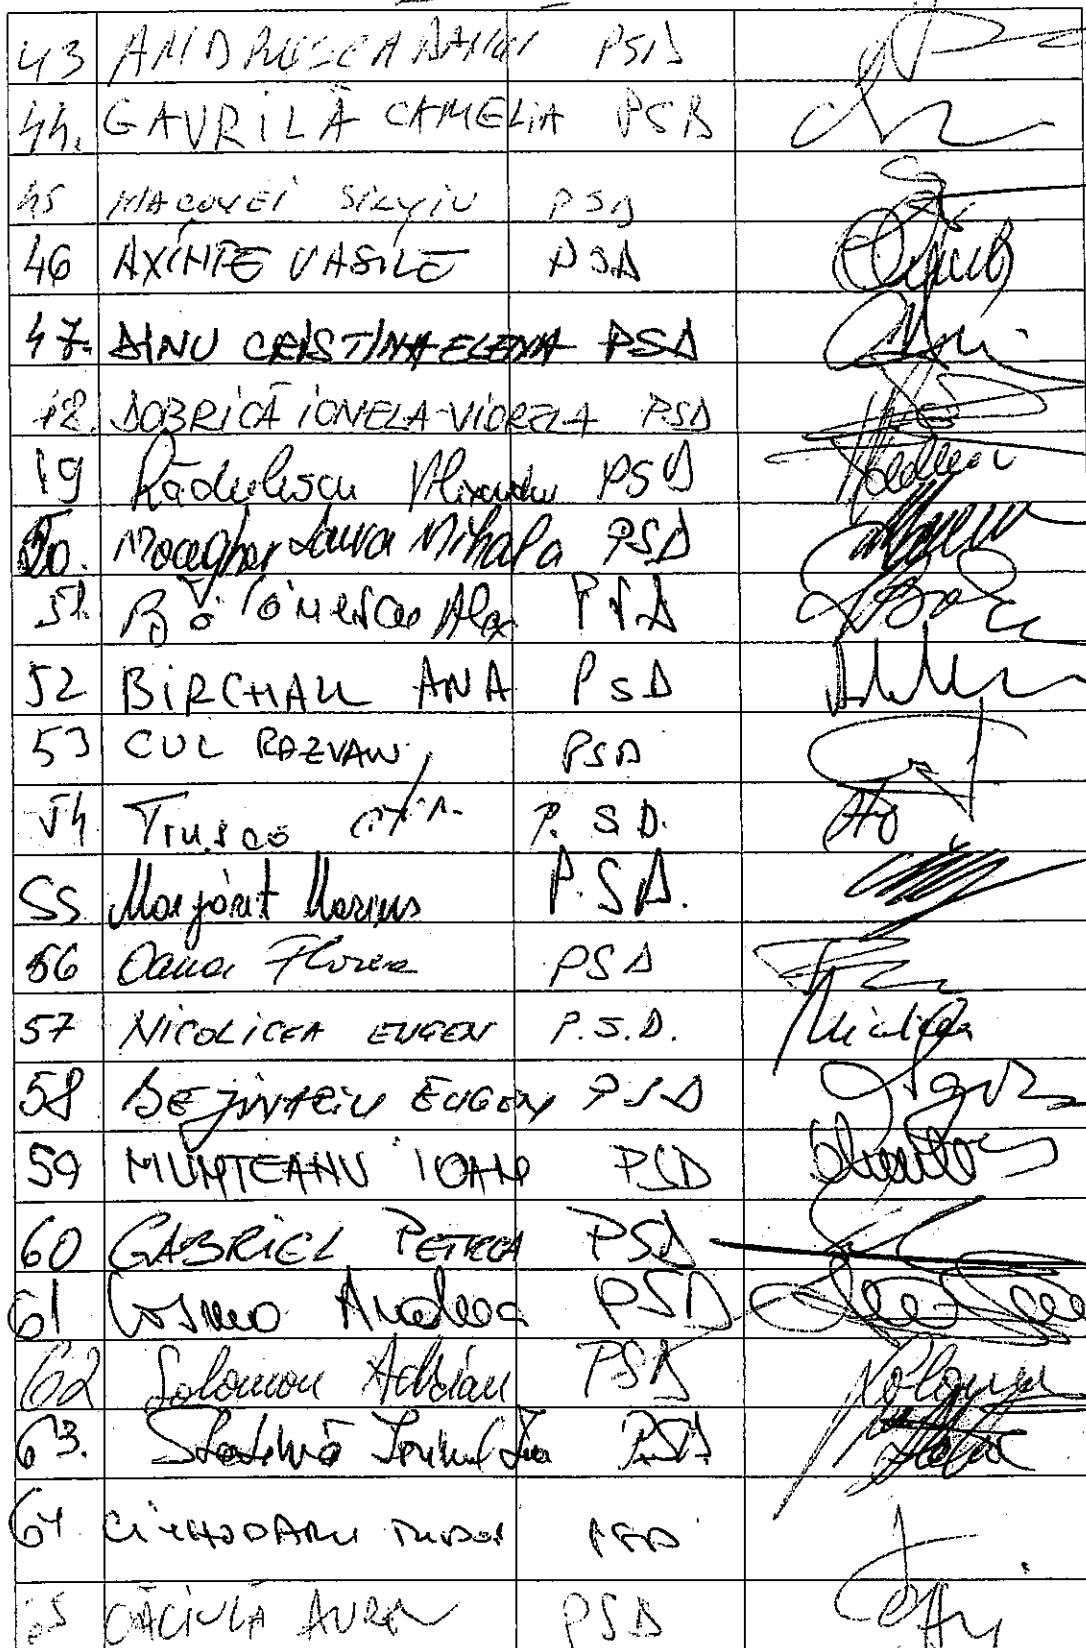 43 ANDRUSCA DANUT PSD
44. GAVRILĂ CAMELIA PSD
45 MACOVEI SILVIU PSD
46 AXINTE VASILE PSD
47. DINU CRISTINA ELENA PSD
48. DOBRICĂ IONELA-VIORELA PSD
49 Rădulescu Alexandru PSD
50. Moagher Laura Mihaela PSD
51. Alex PSD
52 BIRCHALL ANA PSD
53 CUC RAZVAN PSD
54 P.S.D.
55 Margărit Marius P.S.D.
56 Oana Florea PSD
57 NICOLICEA EUGEN P.S.D.
58 BEJINARIU EUGEN PSD
59 MUNTEANU IOAN PSD
60 GABRIEL PETREA PSD
61 Cosma Andreea PSD
62 Solomon Adrian PSD
63. PSD
64 CIUHODARU TUDOR PSD
65 CĂCIULĂ AUREL PSD